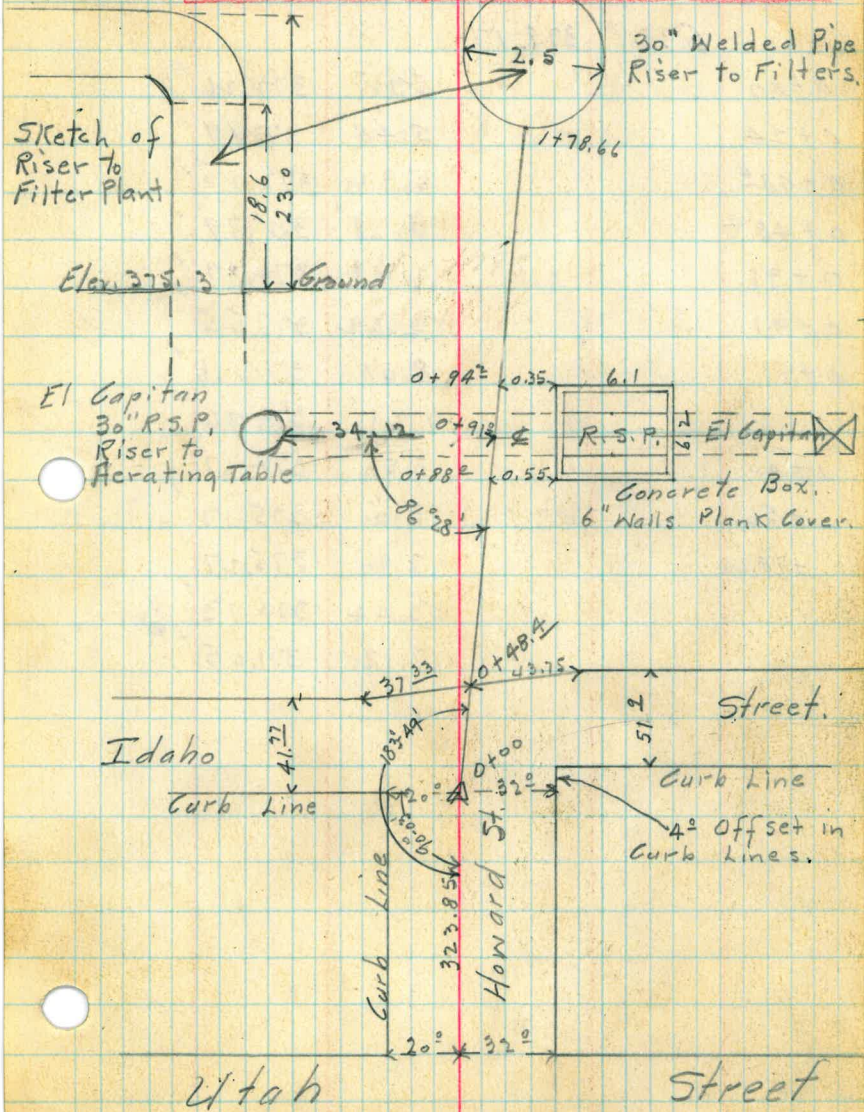 30" Welded Pipe
Riser to Filters.
2.5
1+78.66
Sketch of
Riser to
Filter Plant
18.6
23.0
Elev. 375.3 Ground
El Capitan
30" R.S.P.
Riser to
Aerating Table
34.12
0+94²
0.35
6.1
0+91²
℄
R.S.P.
6.2
El Capitan
0+88²
0.55
86°28'
Concrete Box.
6" Walls Plank Cover.
0+48.4
37.33
43.75
41.77
51.9
Idaho
Street.
183°49'
0+00
Curb Line
20.0
32.0
Curb Line
4.0 Offset in
Curb Lines.
Curb Line
323.85
Howard St.
20.0
32.0
Utah Street